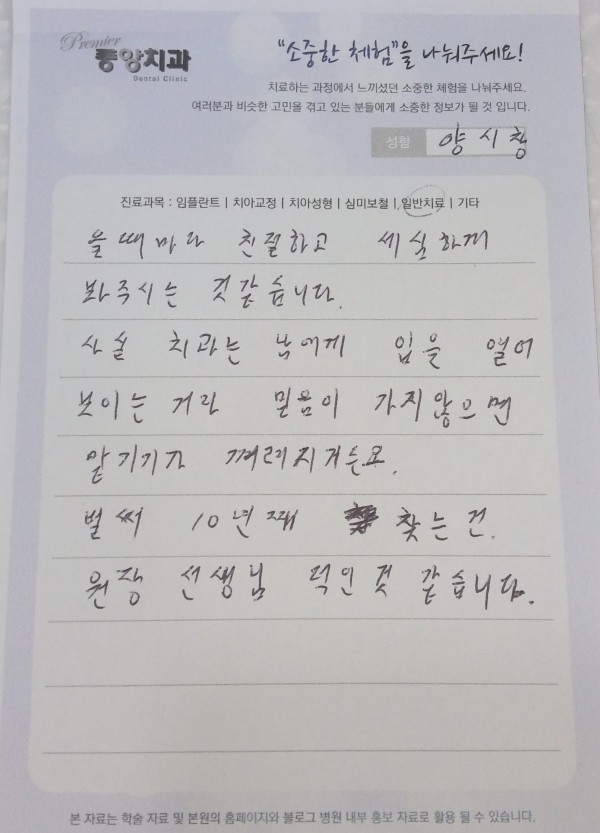 Premier
중앙치과
Dental Clinic
"소중한 체험"을 나눠주세요!
치료하는 과정에서 느끼셨던 소중한 체험을 나눠주세요.
여러분과 비슷한 고민을 겪고 있는 분들에게 소중한 정보가 될 것 입니다.
성함 양시창
진료과목 : 임플란트 | 치아교정 | 치아성형 | 심미보철 | 일반치료 | 기타
올때마다 친절하고 세심하게
봐주시는 것같습니다.
사실 치과는 남에게 입을 열어
보이는거라 믿음이 가지않으면
맡기기가 꺼려지거든요.
벌써 10년째 찾는건.
원장 선생님 덕인것 같습니다.
본 자료는 학술 자료 및 본원의 홈페이지와 블로그 병원 내부 홍보 자료로 활용 될 수 있습니다.